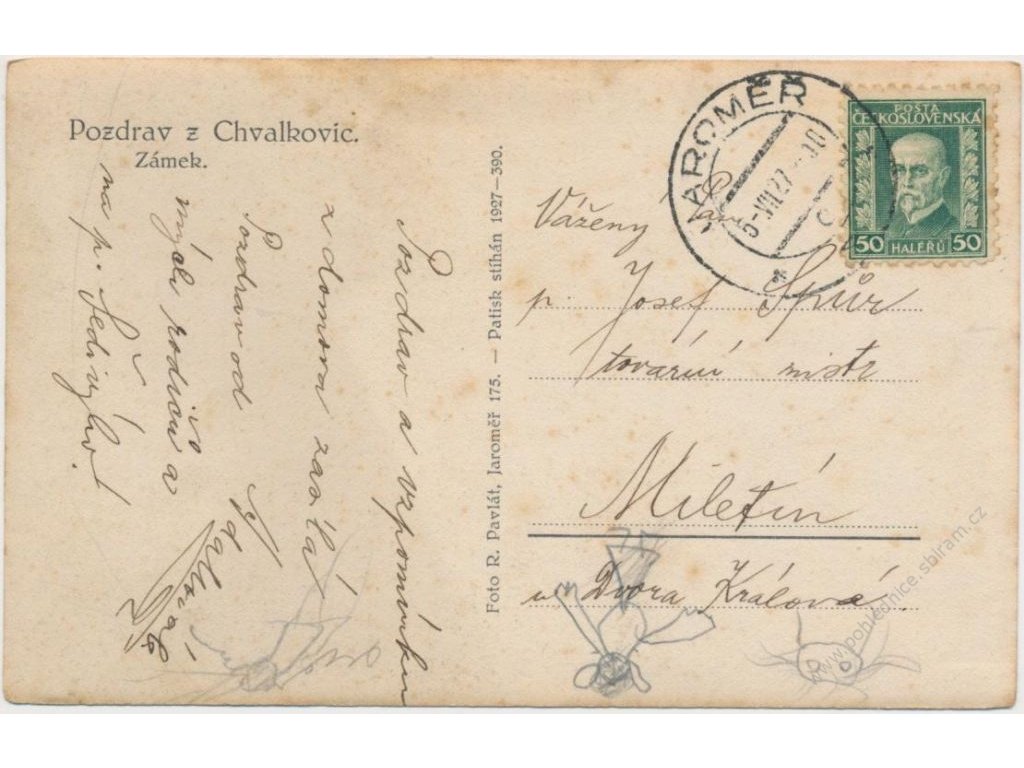 Pozdrav z Chvalkovic.
Zámek.
Pozdrav a vzpomínku
z domova zasílá
Pozdrav od
mých rodičů a
na p.
Foto R. Pavlát, Jaroměř 175. — Patisk stíhán 1927—390.
JAROMĚŘ
5.VII.27
POŠTA
ČESKOSLOVENSKÁ
50 HALÉŘŮ 50
Vážený Pan
p. Josef
tovární
Miletín
u Dvora Králové
www.pohlednice.sbiram.cz